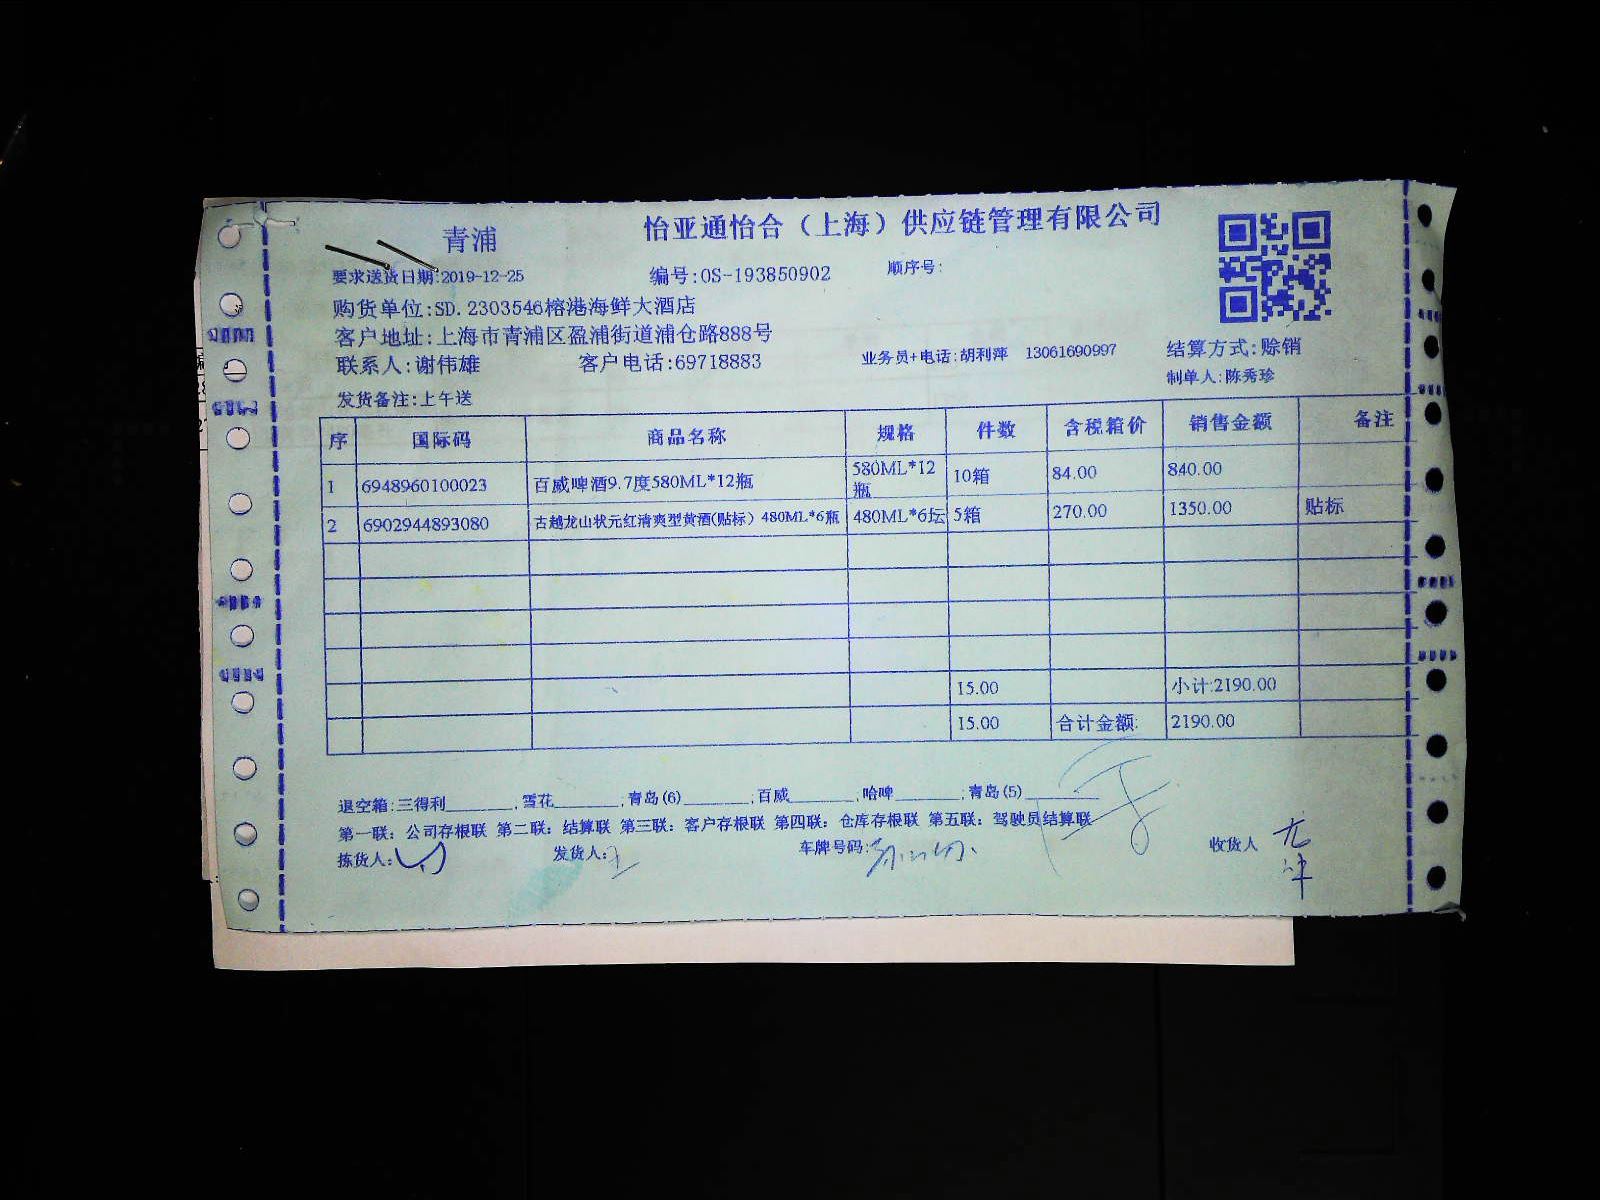 青浦
怡亚通怡合（上海）供应链管理有限公司
要求送货日期:2019-12-25 编号:OS-193850902 顺序号:
购货单位:SD.2303546榕港海鲜大酒店
客户地址:上海市青浦区盈浦街道浦仓路888号
联系人:谢伟雄 客户电话:69718883 业务员+电话:胡利萍 13061690997 结算方式:赊销
制单人:陈秀珍
发货备注:上午送
序 国际码 商品名称 规格 件数 含税箱价 销售金额 备注
1 6948960100023 百威啤酒9.7度580ML*12瓶 580ML*12瓶 10箱 84.00 840.00
2 6902944893080 古越龙山状元红清爽型黄酒(贴标）480ML*6瓶 480ML*6坛 5箱 270.00 1350.00 贴标
15.00 小计:2190.00
15.00 合计金额: 2190.00
退空箱:三得利______,雪花______;青岛(6)______;百威______,哈啤______;青岛(5)______
第一联：公司存根联 第二联：结算联 第三联：客户存根联 第四联：仓库存根联 第五联：驾驶员结算联
拣货人: 发货人: 车牌号码: 收货人